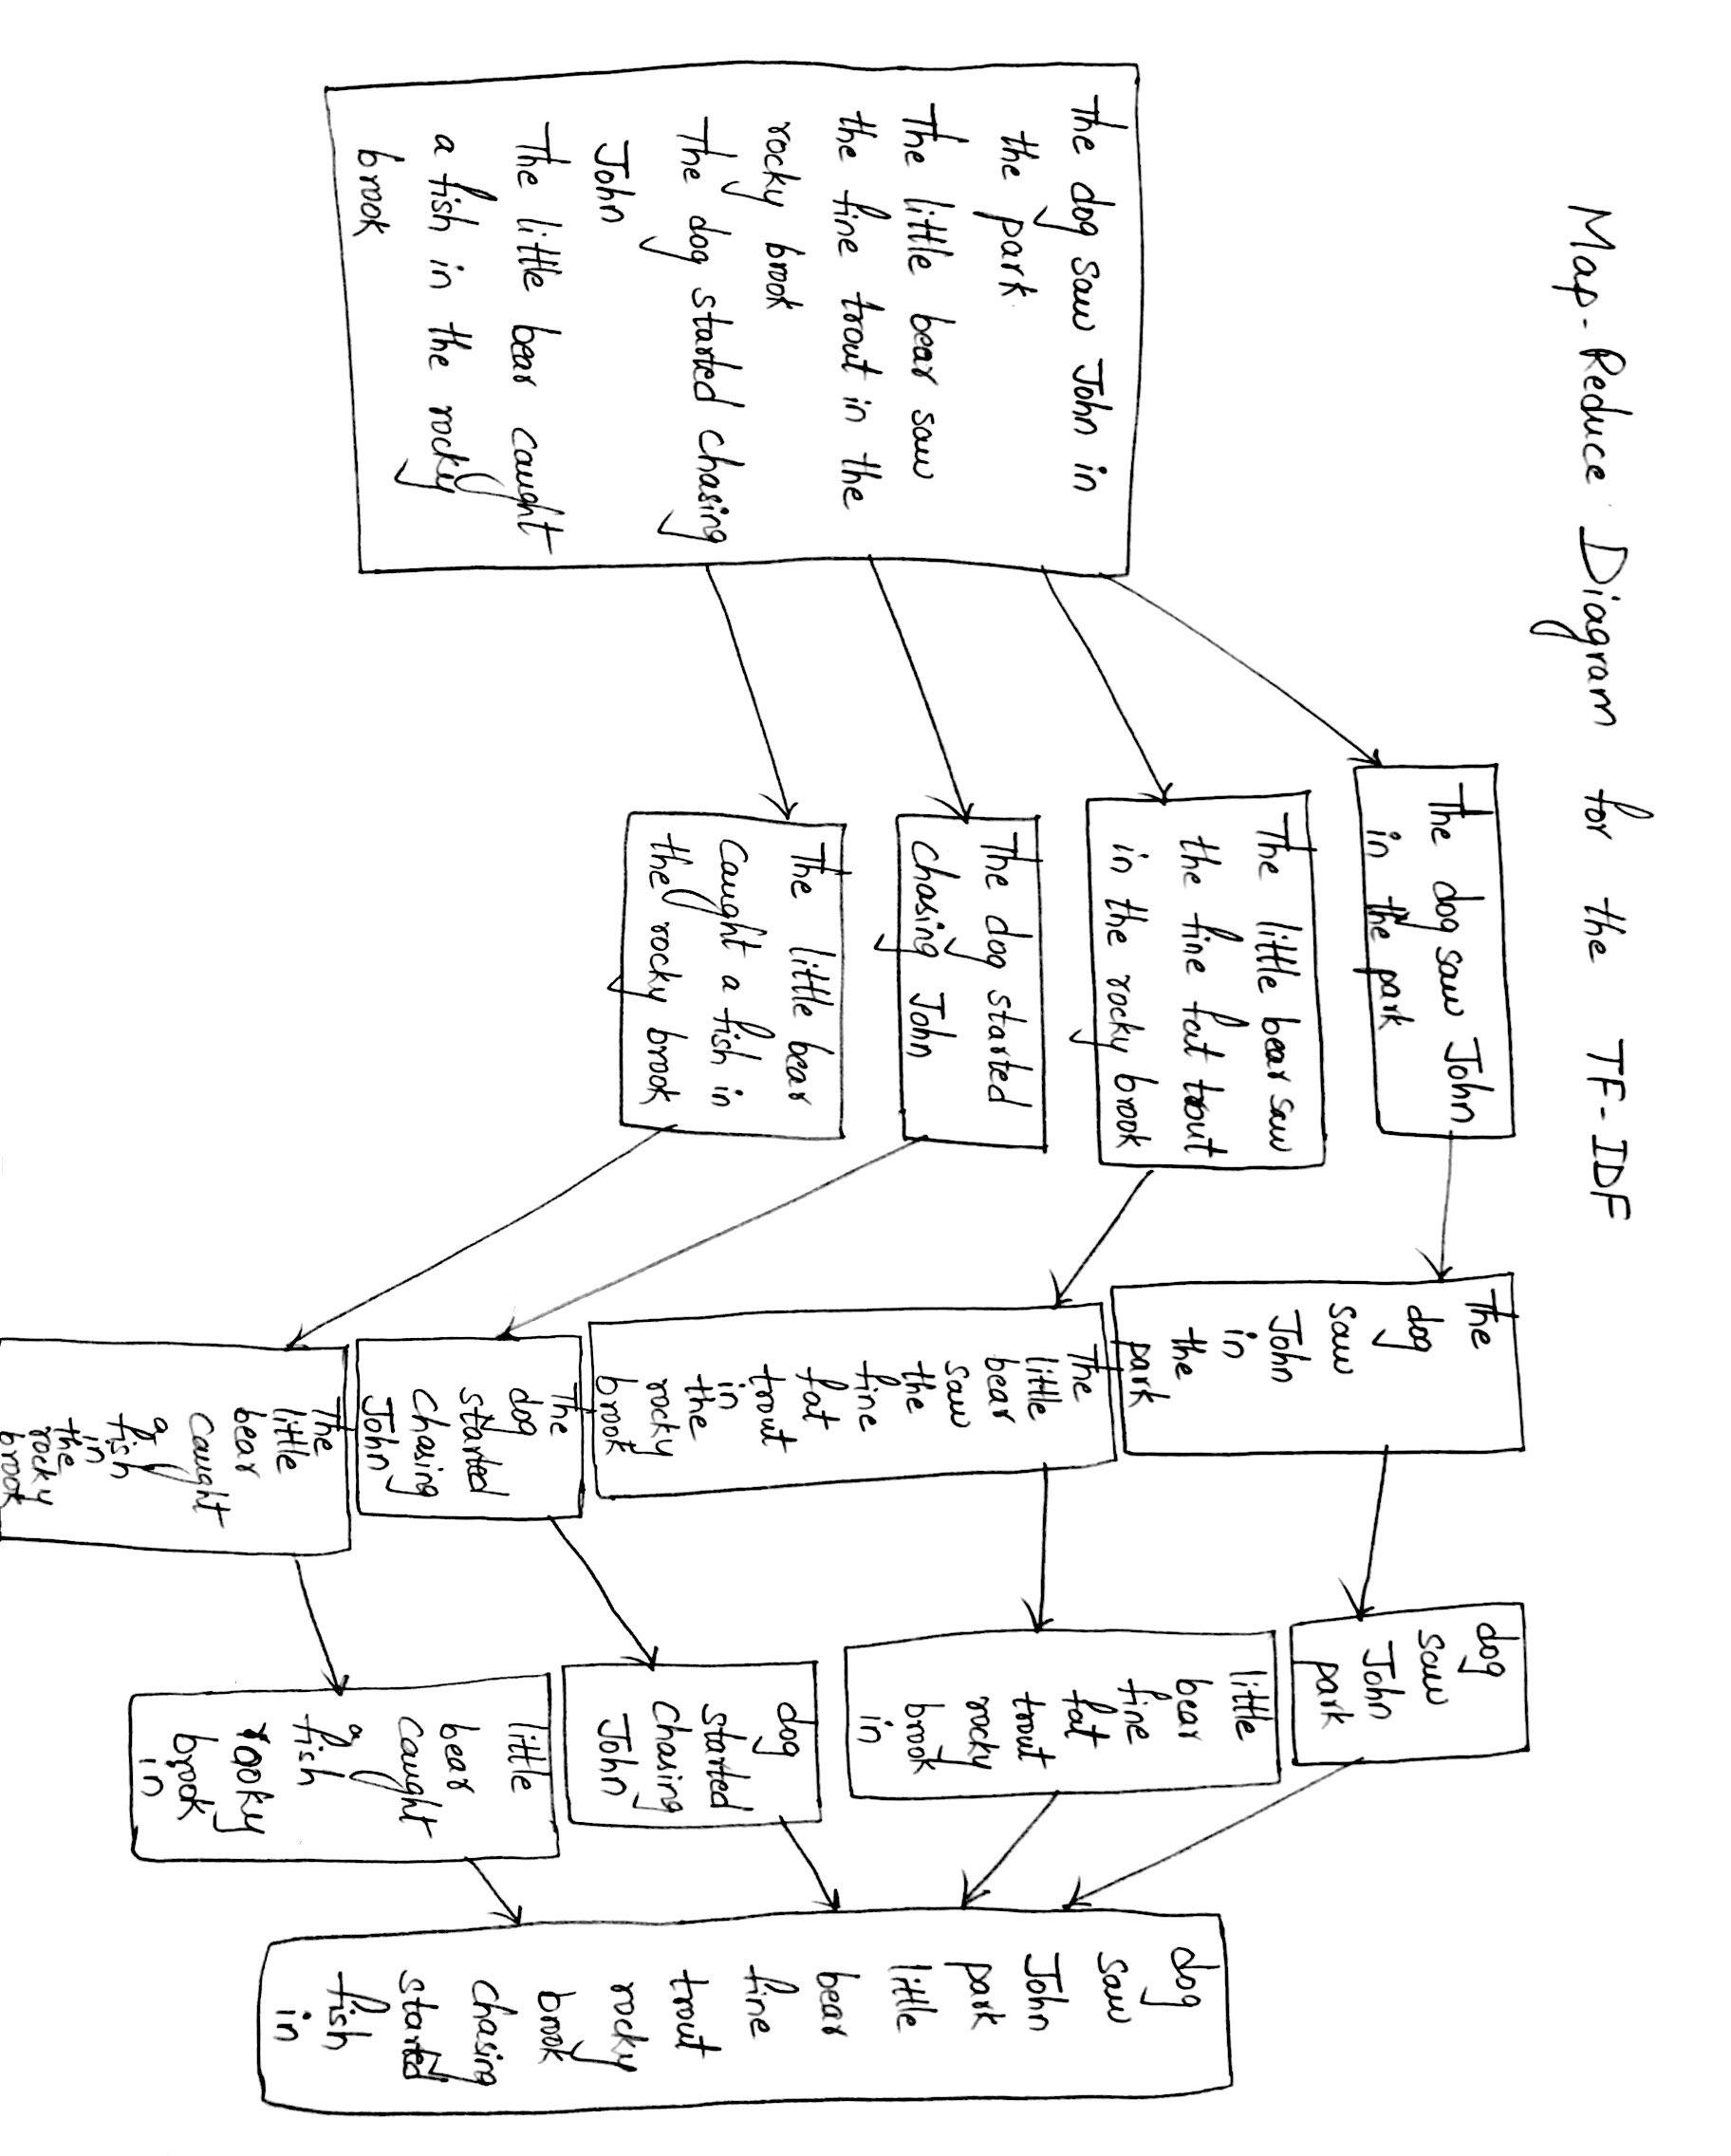 Map-Reduce Diagram for the TF-IDF
The dog saw John in
the park
The little bear saw
the fine trout in the
rocky brook
The dog started chasing
John
The little bear caught
a fish in the rocky
brook
The dog saw John
in the park
The little bear saw
the fine fat trout
in the rocky brook
The dog started
chasing John
The little bear
caught a fish in
the rocky brook
The
dog
saw
John
in
the
park
The
little
bear
saw
the
fine
fat
trout
in
the
rocky
brook
The
dog
started
chasing
John
The
little
bear
caught
a
fish
in
the
rocky
brook
dog
saw
John
park
little
bear
fine
fat
trout
rocky
brook
in
dog
started
chasing
John
little
bear
caught
a
fish
rooky
brook
in
dog
saw
John
park
little
bear
fine
trout
rocky
brook
chasing
started
fish
in